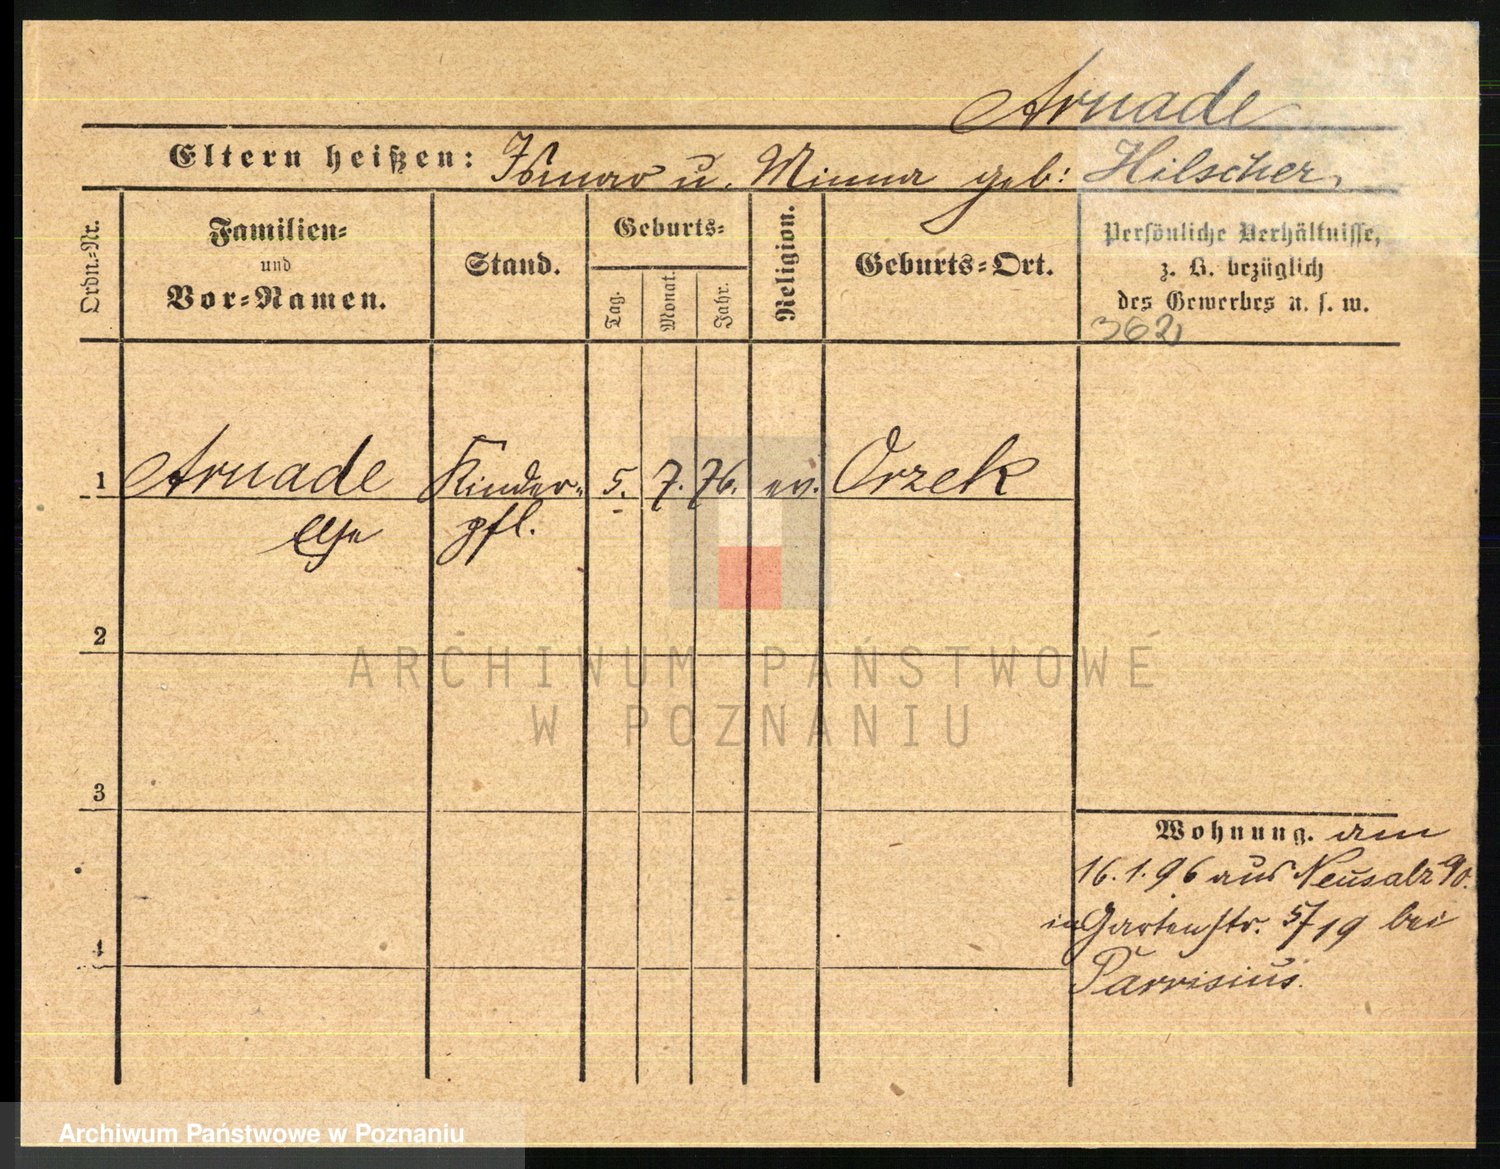 Arnade
Eltern heißen: Ismar u. Minna geb: Hilscher
Ordn.-Nr.
Familien-
und
Vor-Namen.
Stand.
Geburts-
Tag.
Monat.
Jahr.
Religion.
Geburts-Ort.
Persönliche Verhältnisse,
z. B. bezüglich
des Gewerbes u. s. w.
362
1 Arnade Kinder- 5. 7. 76. ev. Orzek
Else pfl.
2
3
4
Wohnung. am
16.1.96 aus Neusalz a/O.
in Gartenstr. 5/19 bei
Parrisius.
ARCHIWUM PAŃSTWOWE
W POZNANIU
Archiwum Państwowe w Poznaniu